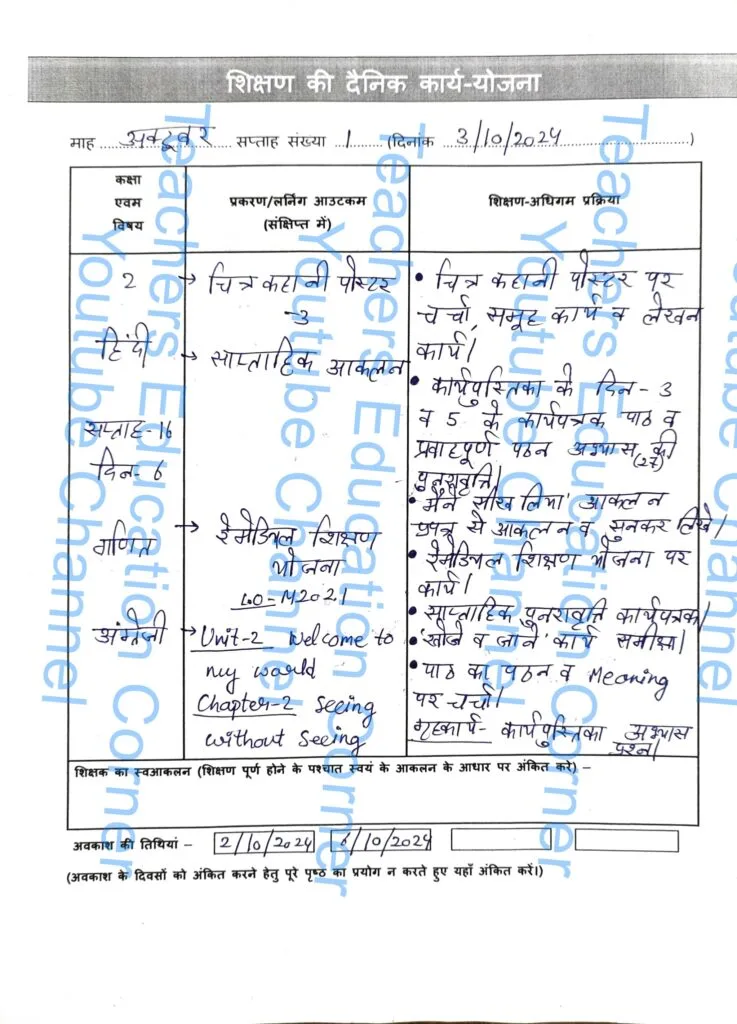 शिक्षण की दैनिक कार्य-योजना
माह अक्टूबर सप्ताह संख्या 1 (दिनांक 3/10/2024)
कक्षा
एवम
विषय
प्रकरण/लर्निंग आउटकम
(संक्षिप्त में)
शिक्षण-अधिगम प्रक्रिया
2
हिंदी
सप्ताह-16
दिन-6
गणित
अंग्रेजी
→ चित्र कहानी पोस्टर
-3
→ साप्ताहिक आकलन
→ रेमेडियल शिक्षण
योजना
LO-M202.1
→ Unit-2 Welcome to
my world
Chapter-2 Seeing
without Seeing
• चित्र कहानी पोस्टर पर
चर्चा, समूह कार्य व लेखन
कार्य।
• कार्यपुस्तिका के दिन-3
व 5 के कार्यपत्रक पाठ व
प्रवाहपूर्ण पठन अभ्यास (27) की
पुनरावृत्ति।
• 'मैंने सीख लिया' आकलन
प्रपत्र से आकलन व सुनकर लिखे।
• रेमेडियल शिक्षण योजना पर
कार्य।
• साप्ताहिक पुनरावृत्ति कार्यपत्रक।
• 'खोजें व जाने' कार्य समीक्षा।
• पाठ का पठन व Meaning
पर चर्चा।
गृहकार्य- कार्यपुस्तिका अभ्यास
प्रश्न।
शिक्षक का स्वआकलन (शिक्षण पूर्ण होने के पश्चात स्वयं के आकलन के आधार पर अंकित करे) –
अवकाश की तिथियां – 2/10/2024 6/10/2024
(अवकाश के दिवसों को अंकित करने हेतु पूरे पृष्ठ का प्रयोग न करते हुए यहाँ अंकित करें।)
Teachers Education Corner
Youtube Channel
Teachers Education Corner
Youtube Channel
Teachers Education Corner
Youtube Channel